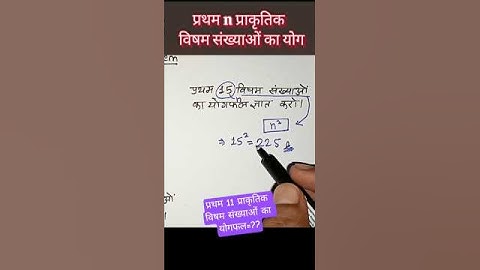 प्रथम n प्राकृतिक
विषम संख्याओं का योग
em
प्रथम 15 विषम संख्याओं
का योगफल ज्ञात करो।
n²
⇒ 15² = 225
प्रथम 11 प्राकृतिक
विषम संख्याओं का
योगफल=??